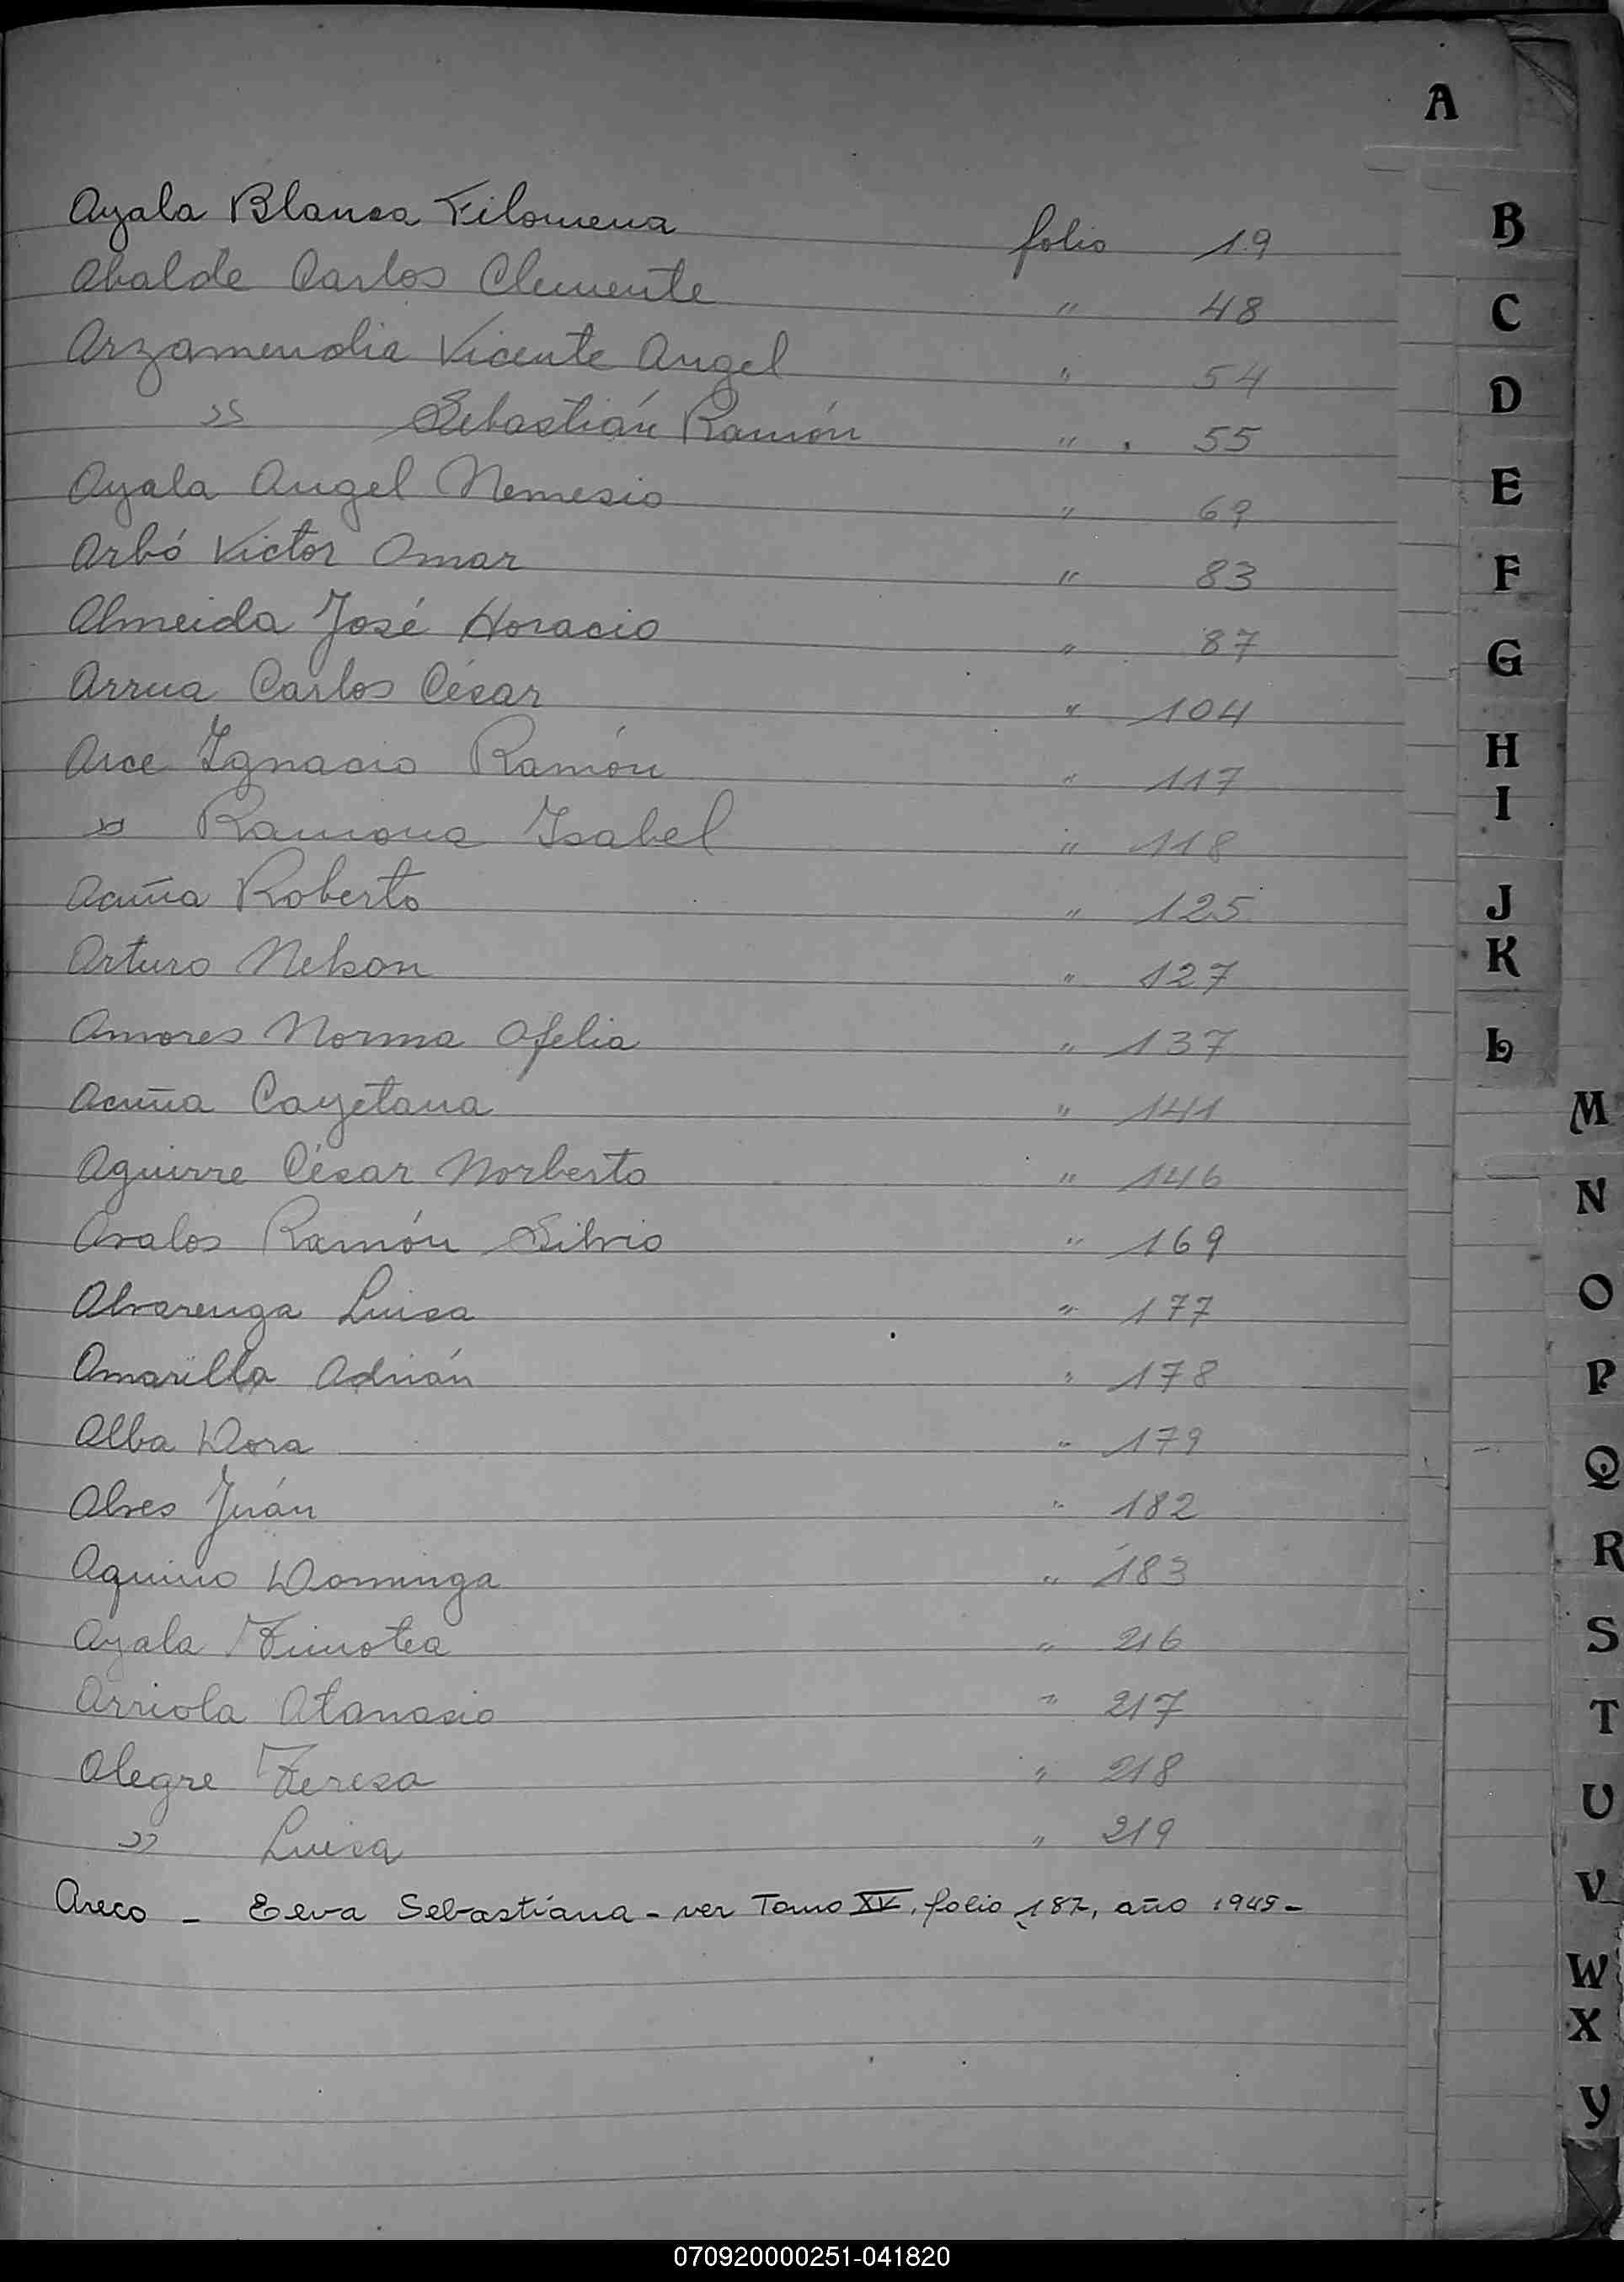 A
Ayala Blanca Filomena folio 19
Abalde Carlos Clemente " 48
Arzamendia Vicente Angel " 54
" Sebastián Ramón " 55
Ayala Angel Nemesio " 69
Arbó Victor Omar " 83
Almeida José Horacio " 87
Arrua Carlos César " 104
Arce Ignacio Ramón " 117
" Ramona Isabel " 118
Acuña Roberto " 125
Arturo Nelson " 127
Amores Norma Ofelia " 137
Acuña Cayetana " 141
Aguirre César Norberto " 146
Avalos Ramón Silvio " 169
Alvarenga Luisa " 177
Amarilla Adrián " 178
Alba Dora " 179
Alves Juán " 182
Aquino Dominga " 183
Ayala Timotea " 216
Arriola Atanasio " 217
Alegre Teresa " 218
" Luisa " 219
Areco - Eeva Sebastiana - ver Tomo XV, folio 187, año 1949-
B
C
D
E
F
G
H
I
J
K
L
M
N
O
P
Q
R
S
T
U
V
W
X
Y
070920000251-041820